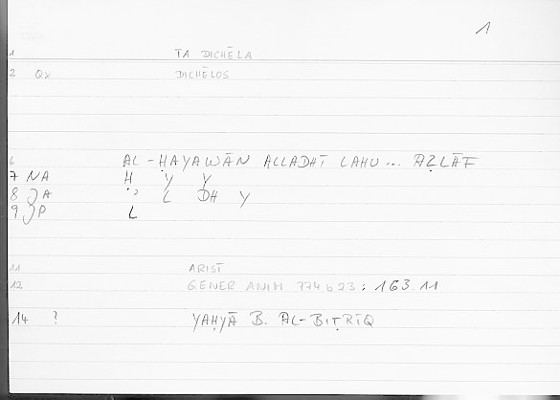 1
1 TA DICHĒLA
2 Qx DICHĒLOS
6 AL-ḤAYAWĀN ALLADHĪ LAHU... AẒLĀF
7 NA Ḥ Y Y
8 JA ʾ L DH Y
9 JP L
11 ARIST
12 GENER ANIM 774b23: 163.11
14 ? YAḤYĀ B. AL-BIṬRĪQ